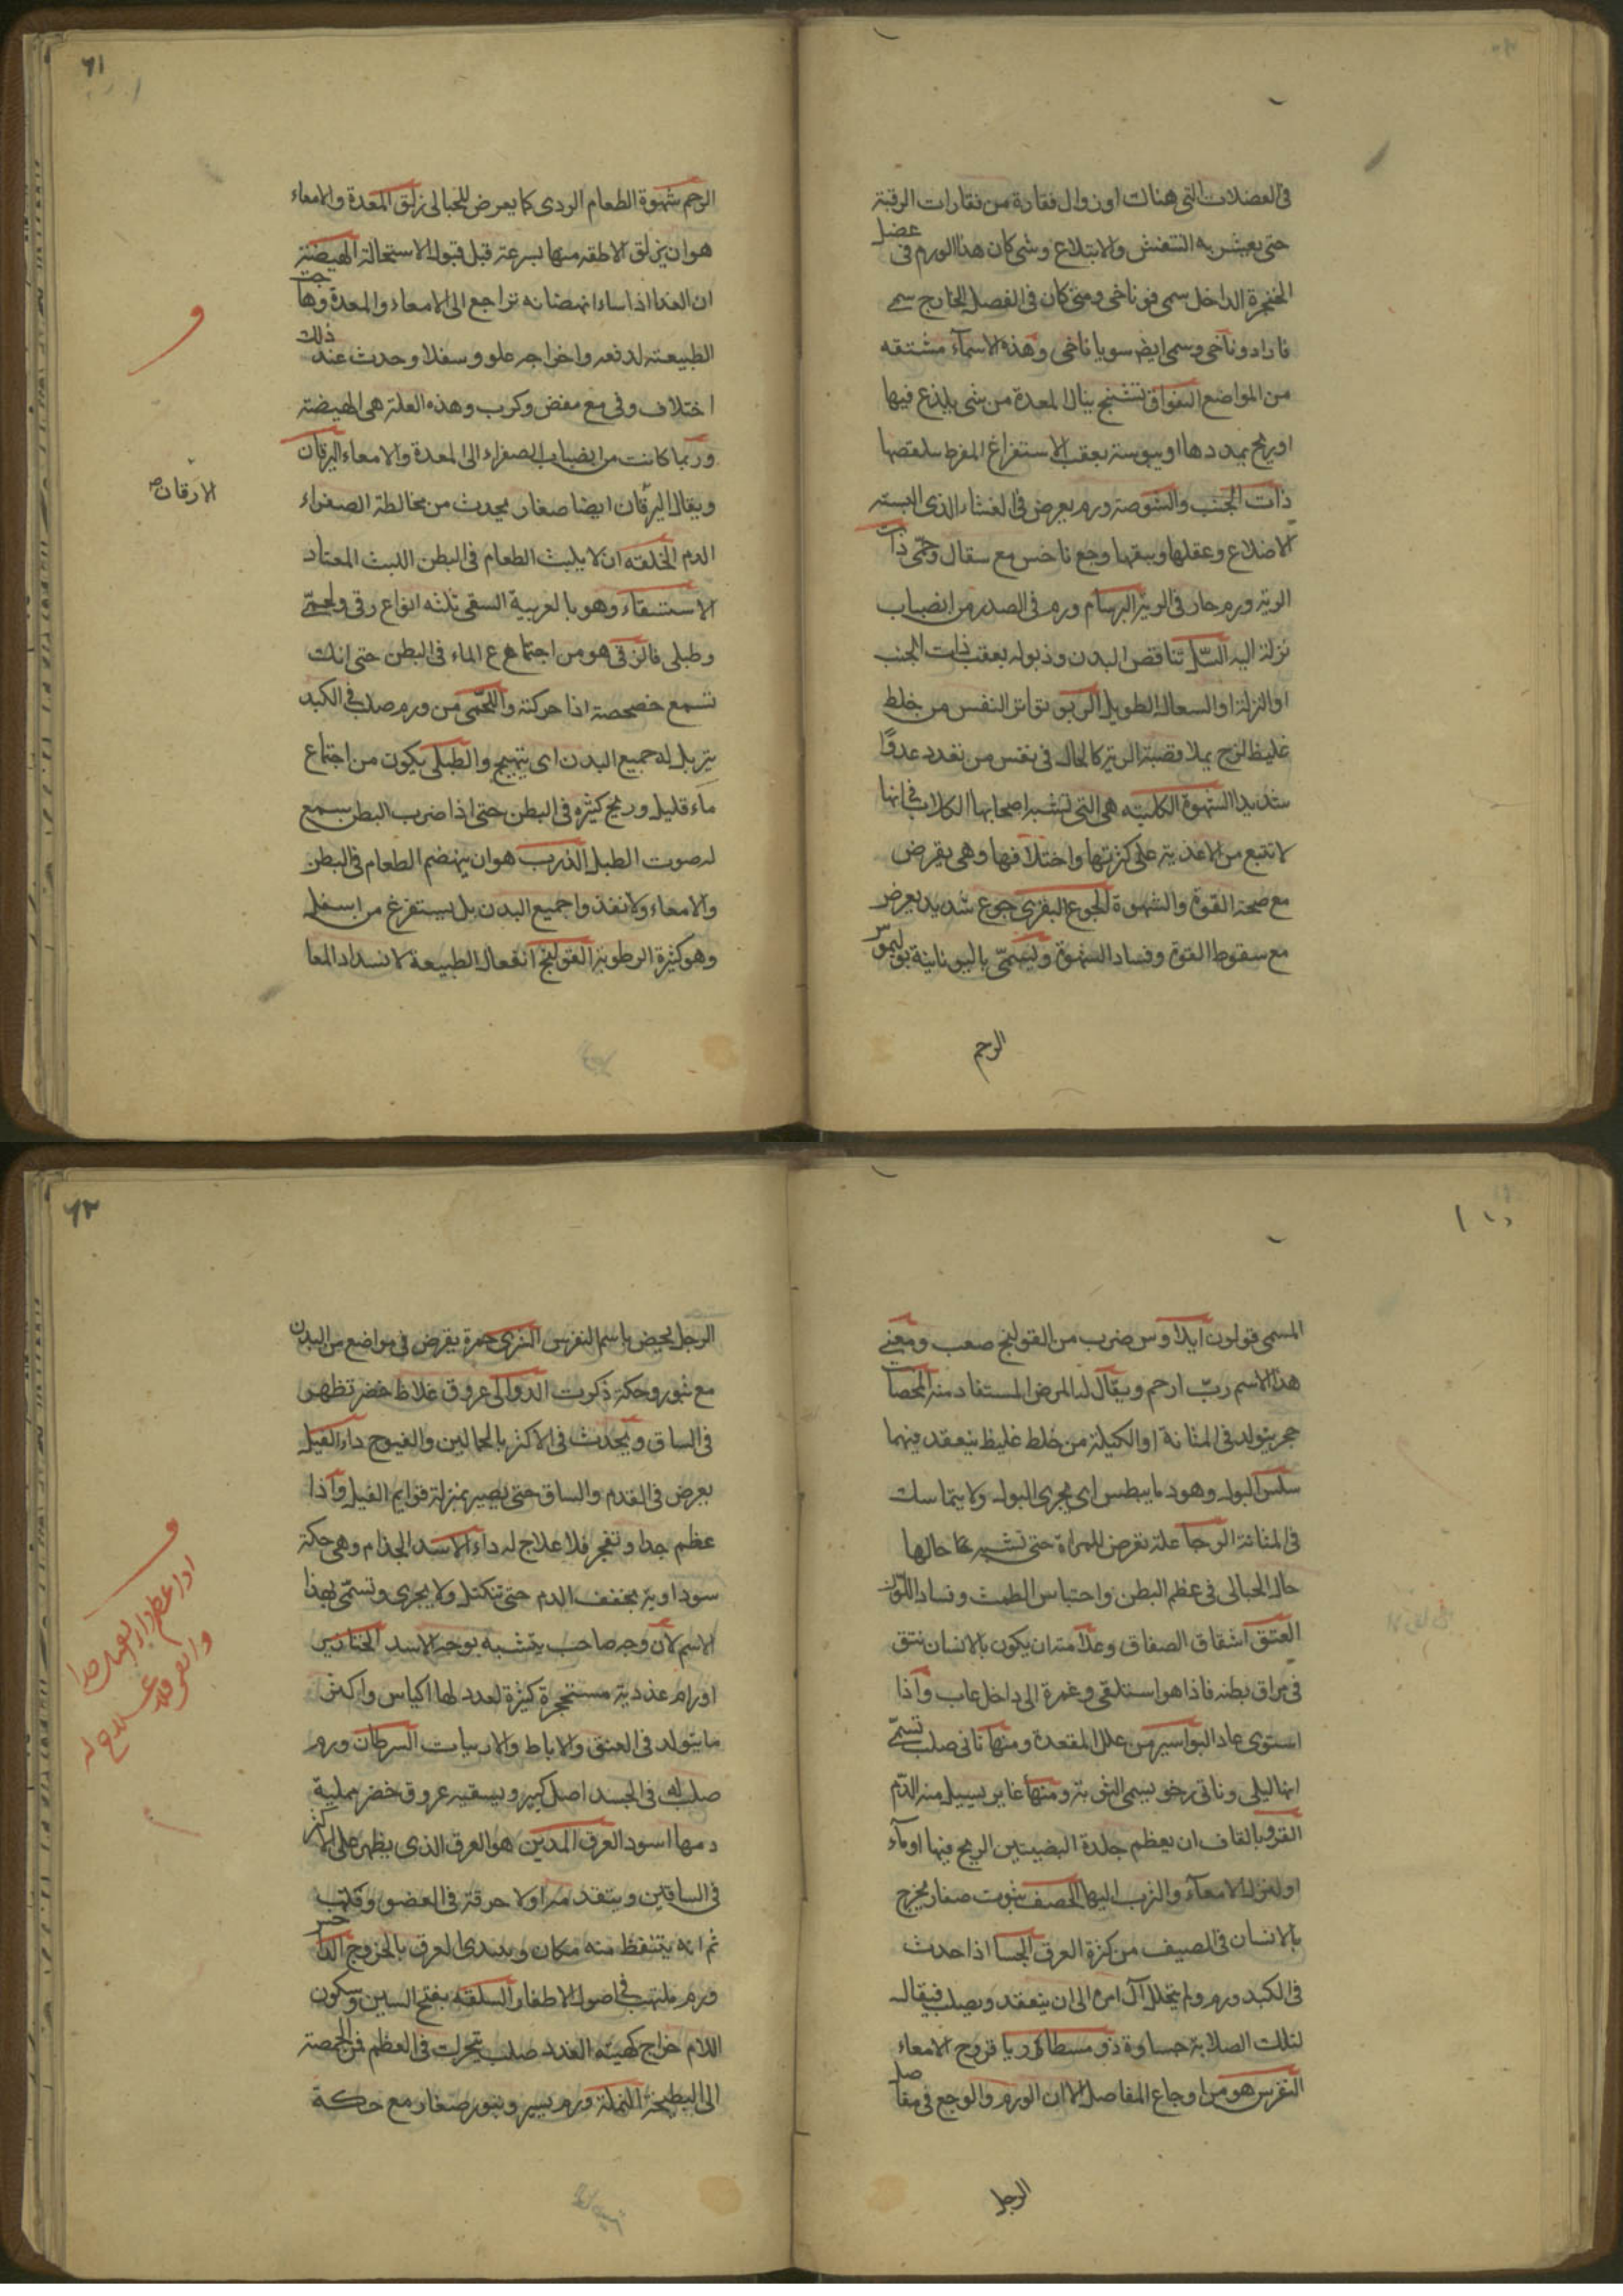 فى العضلات التى هناك او زوال فقارة من فقارات الرقبة
حتى يعسر به التنفس والابتلاع ومتى كان هذا الورم فى عضل
الحنجرة الداخل سمى قوناخى ومتى كان فى الفصل الخارج سمى
فاراد وناخى وسمى ايضا سوياناخى وهذه الاسماء مشتقه
من المواضع الفواق تشنج ينال المعدة من شى يلذع فيها
او ريح يمددها او يبوسة بعقب الاستفراغ المفرط
ذات الجنب والشوصة ورم يعرض فى الغشاء الذى
الاضلاع وعقلها وجع ناخس مع سعال وحمى ذات
الرية ورم حار فى الرية البرسام ورم فى الصدر من انصباب
نزلة اليه السل تناقص البدن وذبوله بعقب ذات الجنب
او النزلة او السعال الطويل الربو تواتر النفس من خلط
غليظ لزج يملا قصبة الرية كالحال فى نفس من تعدد عدوا
شديدا الشهوة الكلبيه هى التى تشبه اصحابها الكلاب فانها
لا تقبع من الاغذية على كثرتها واختلافها وهى تعرض
مع صحة القوة والشهوة الجوع البقرى جوع شديد يعرض
مع سقوط القوة وفساد الشهوة وتسمى باليونانية بوليموس
الرحم
٦١
الرحم شهوة الطعام الردى كما يعرض للحبالى زلق المعدة والامعاء
هو ان يزلق الاطعمه منها بسرعة قبل قبوله الاستحالة الهيضة
ان الغذا اذا ساء انهضامه تراجع الى الامعاء والمعدة وهاجت
الطبيعة لدفعه واخراجه علو وسفلا وحدث عند ذلك
اختلاف وقى مع مغص وكرب وهذه العلة هى الهيضة
وربما كانت من انصباب الصفراء الى المعدة والامعاء اليرقان
الارقان
ويقال اليرقان ايضا صغار يحدث من مخالطة الصفراء
الدم الخلفه ان لا يلبث الطعام فى البطن اللبث المعتاد
الاستسقاء وهو بالعربية السقى ثلثه انواع زقى ولحمى
وطبلى فالزقى هو من اجتماع الماء فى البطن حتى انك
تسمع خضخضة اذا حركته واللحمى من ورم صلب فى الكبد
يتربل له جميع البدن اى يتهيج والطبلى يكون من اجتماع
ماء قليل وريح كثيره فى البطن حتى اذا ضرب البطن سمع
له صوت الطبل الذرب هو ان ينهضم الطعام فى البطن
والامعاء ولا نفذ واجميع البدن بل يستفرغ من اسفل
وهو كثيرة الرطوبة القولنج انفعال الطبيعة لانسداد المعا
المسمى قولون ايلاوس ضرب من القولنج صعب ومعنى
هذا الاسم رب ارحم ويقال له المرض المستفاد منه الحصا
حجر يتولد فى المثانة او الكلية من خلط غليظ ينعقد فيهما
سلس البول وهو ديابيطس اى يجرى البول ولا يتماسك
فى المثانة الرجا علة تعرض للمراة حتى تشبه حالها
حال الحبالى فى عظم البطن واحتباس الطمث وفساد اللون
الفتق انشقاق الصفاق وعلامته ان يكون بالانسان نتق
فى مراق بطنه فاذا هو استلقى وغمزة الى داخل غاب واذا
استوى عاد البواسير من علل المقعدة ومنها ناتى صلب تسمى
اثاليلى وناتى رخو يسمى التوثة ومنها غاير يسيل منه الدم
القرو بالقاف ان يعظم جلدة البيضتين لريح فيها او ماء
او لنزول الامعاء والثرب اليها الحصف بثور صغار يخرج
بالانسان فى الصيف من كثرة العرق الجسا اذا حدث
فى الكبد ورم ولم يتحلل آل امره الى ان ينعقد ويصلب فيقال
لتلك الصلابة جساوة ذو سنطاريا قروح الامعاء
النقرس هو من اوجاع المفاصل الا ان الورم والوجع فى مفاصل
الرجل
٦٢
الرجل يخص باسم النقرس الشرى حمرة يعرض فى مواضع من البدن
مع بثور وحكة ذكرت الدوالى عروق غلاظ خضر تظهر
فى الساق ويحدث فى الاكثر بالحمالين والفيوج داء الفيل
يعرض فى القدم والساق حتى يصير بمنزلة قوايم الفيل واذا
عظم جدا وتفجر فلا علاج له داء الاسد الجذام وهى حكة
سوداوية يجفف الدم حتى تتكتل ولا يجرى وتسمى بهذا
الاسم لان وجه صاحبه يتشبه بوجه الاسد الخنازير
اورام غددية مستحجرة كثيرة العدد لها اكياس واكثر
ما يتولد فى العنق والاباط والاربيات السرطان ورم
صلب له فى الجسد اصل كبير ويسقيه عروق خضر ممليه
دمها اسود العرق المدينى هو العرق الذى يظهر على الاكثر
فى الساقين ويتقد مراولا حرقة فى العضو وتلهب
ثم انه يتنفط منه مكان ويبتدى العرق بالخروج الداحس
ورم ملتهب فى اصول الاظفار السلعه بفتح السين وسكون
اللام خراج كهيئه الغدد صلب يتحرك فى العظم من الحمصة
الى البطيخة النملة ورم يسير وبثور صغار مع حكة